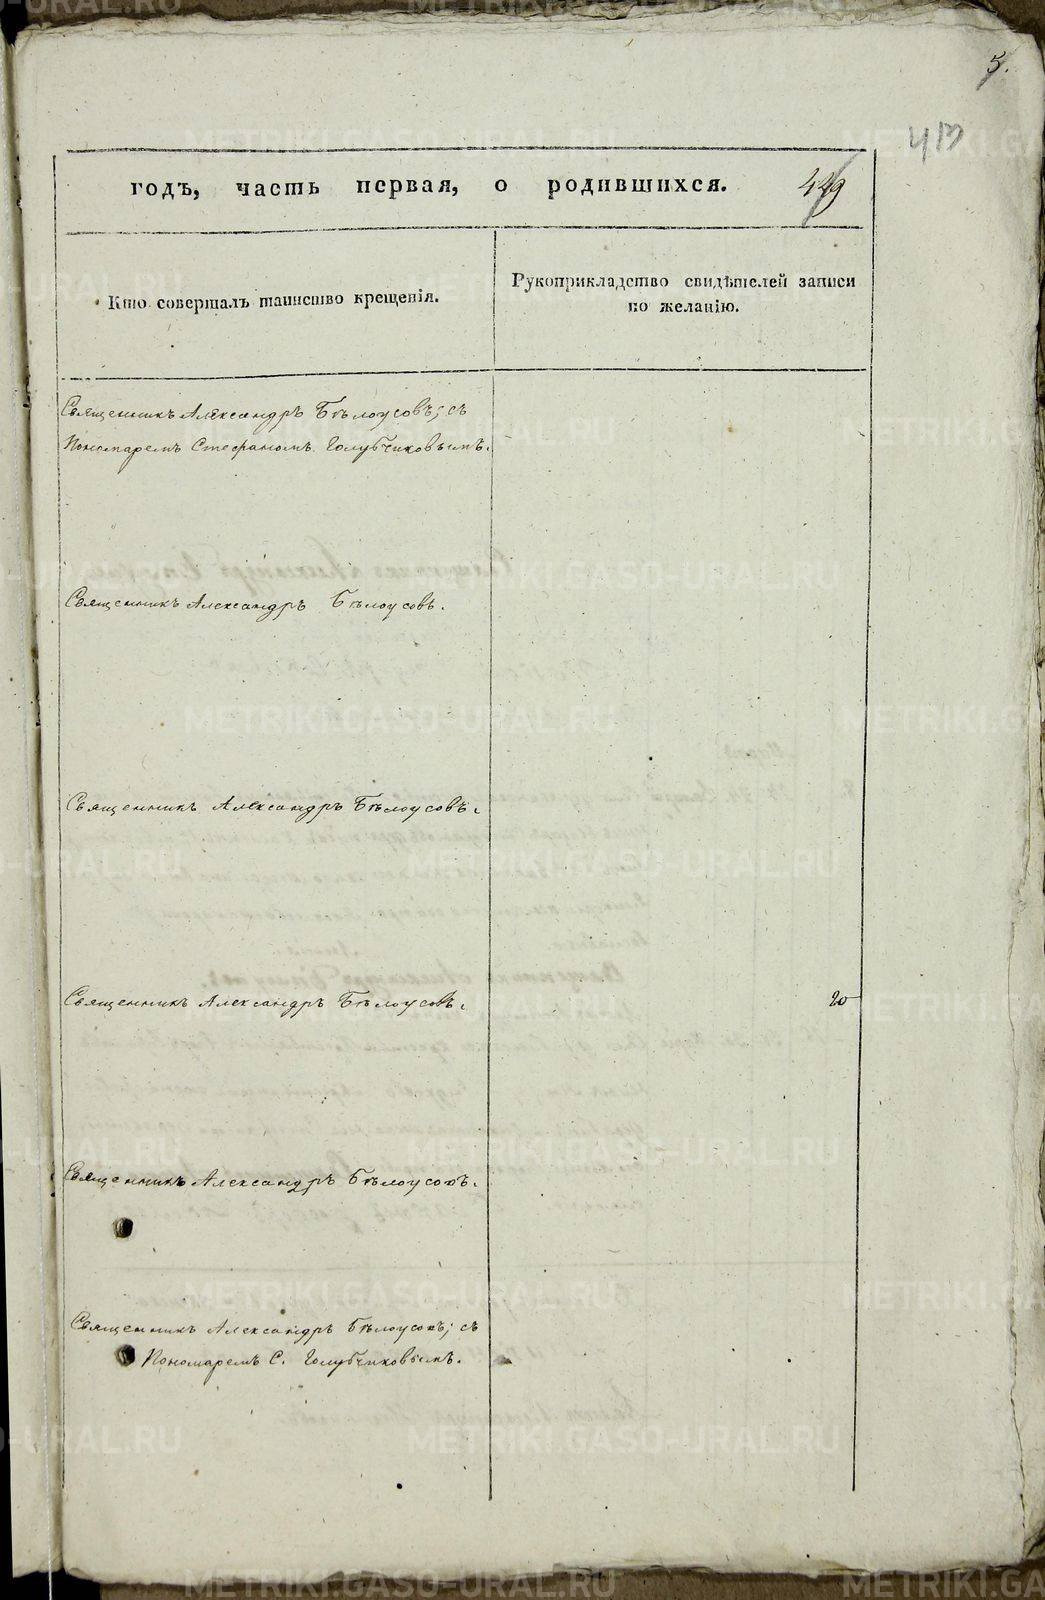 5.
413
годъ, часть первая, о родившихся. 429
Кто совершалъ таинство крещенія.
Рукоприкладство свидѣтелей записи
по желанію.
Священникъ Александръ Бѣлоусовъ; съ
Пономаремъ Стефаномъ Голубчиковымъ.
Священникъ Александръ Бѣлоусовъ.
Священникъ Александръ Бѣлоусовъ.
Священникъ Александръ Бѣлоусовъ.
20
Священникъ Александръ Бѣлоусовъ.
Священникъ Александръ Бѣлоусовъ; съ
Пономаремъ С. Голубчиковымъ.
METRIKI.GASO-URAL.RU